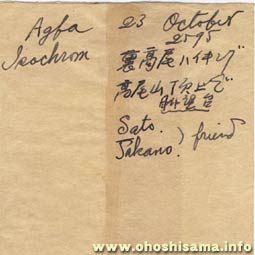 Agfa
Isochrom
23 October
2595
裏高尾ハイキング
高尾山頂上で
眺望台
Sato.
Sakano.
} friend
www.ohoshisama.info